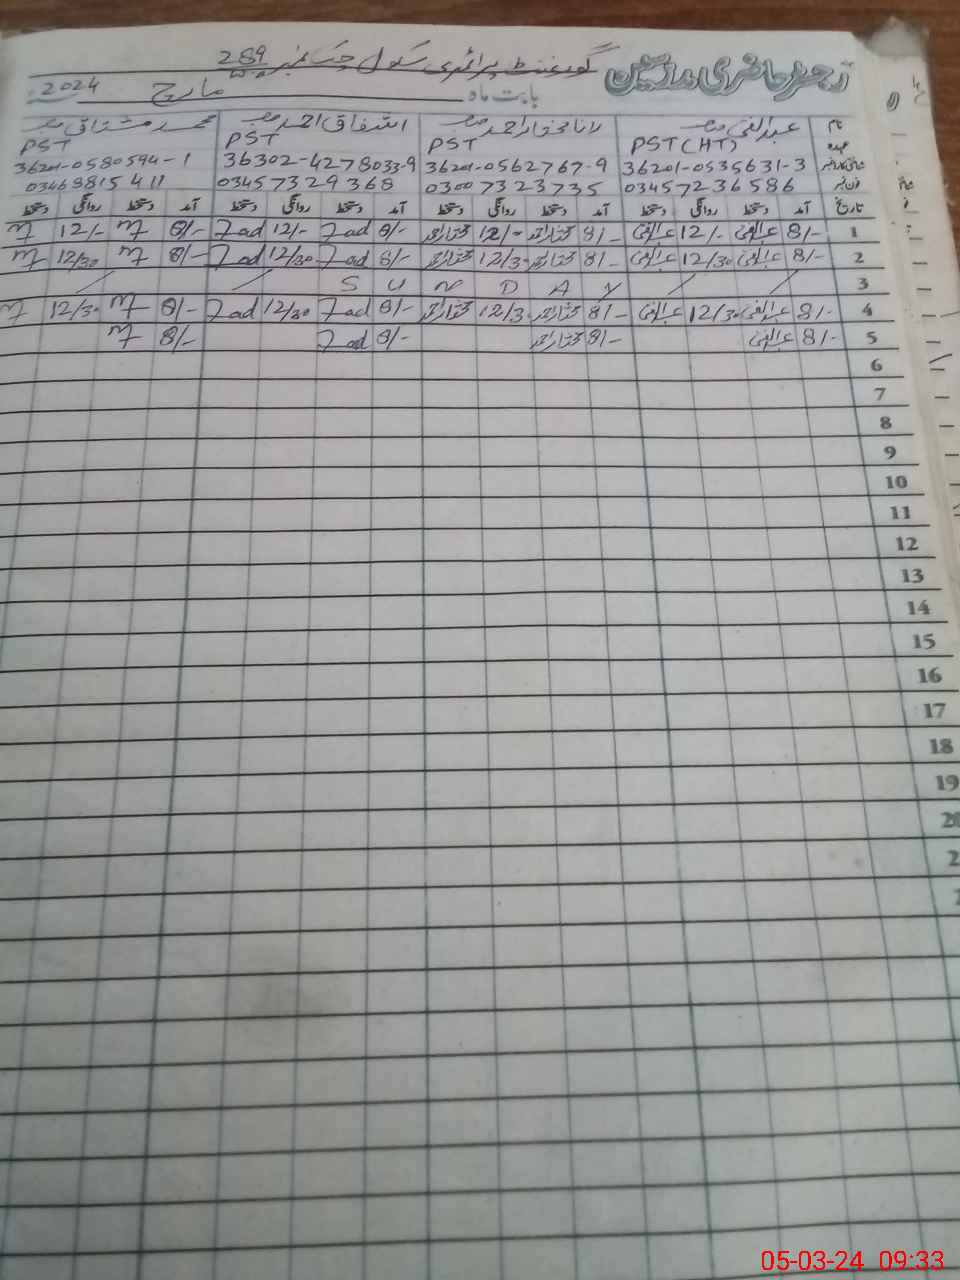 رجسٹر حاضری ملازمین گورنمنٹ پرائمری سکول چک نمبر 289
بابت ماہ مارچ 2024
نام عبدالغنی صاحب رانا مختار احمد صاحب اشفاق احمد صاحب محمد مشتاق صاحب
عہدہ PST(HT) PST PST PST
شناختی کارڈ نمبر 36201-0535631-3 36201-0562767-9 36302-4278033-9 36201-0580594-1
فون نمبر 03457236586 03007323735 03457329368 03468815411
تاریخ آمد دستخط روانگی دستخط آمد دستخط روانگی دستخط آمد دستخط روانگی دستخط آمد دستخط روانگی دستخط
1 8/- عبدالغنی 12/- عبدالغنی 8/- مختار احمد 12/- مختار احمد 8/- 7ad 12/- 7ad 8/- M 12/- M
2 8/- عبدالغنی 12/30 عبدالغنی 8/- مختار احمد 12/3 مختار احمد 8/- 7ad 12/30 7ad 8/- M 12/30 M
3 / / S U N D A Y / /
4 8/- عبدالغنی 12/30 عبدالغنی 8/- مختار احمد 12/3 مختار احمد 8/- 7ad 12/30 7ad 8/- M 12/30 M
5 8/- عبدالغنی 8/- مختار احمد 8/- 7ad 8/- M
6
7
8
9
10
11
12
13
14
15
16
17
18
19
20
05-03-24 09:33